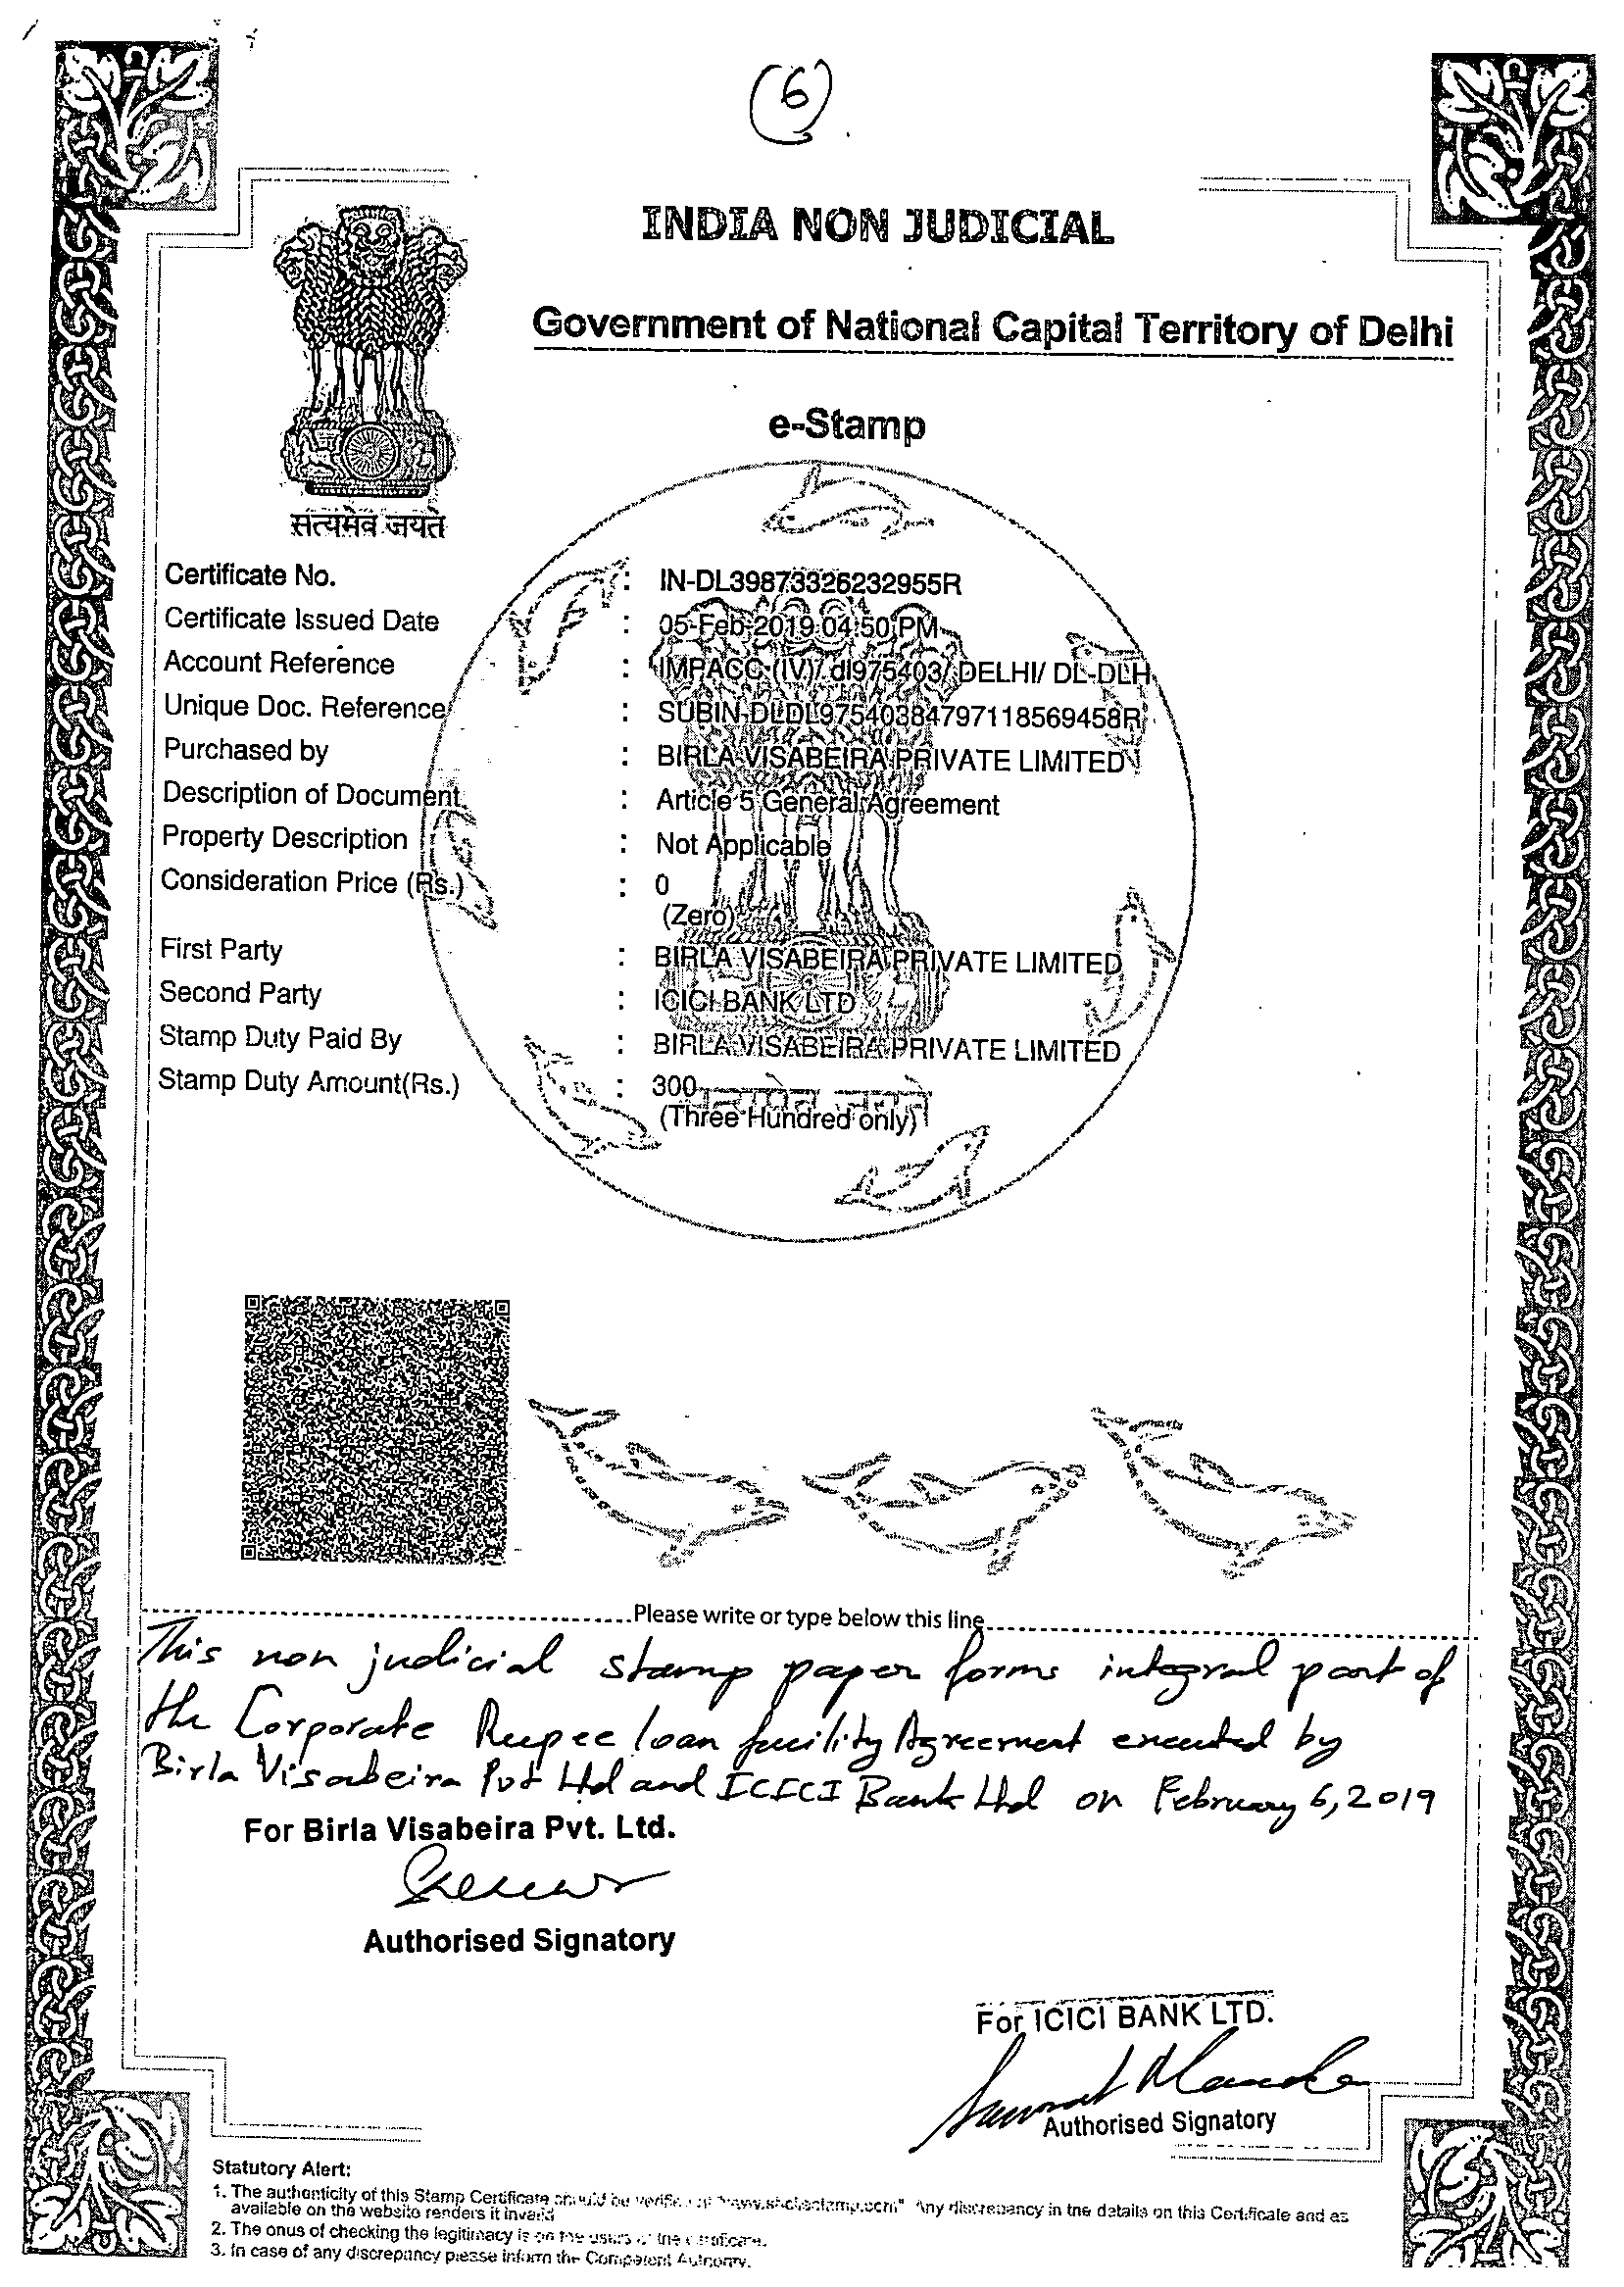 6
INDIA NON JUDICIAL
Government of National Capital Territory of Delhi
e-Stamp
सत्यमेव जयते
Certificate No. : IN-DL39873326232955R
Certificate Issued Date : 05-Feb-2019 04:50 PM
Account Reference : IMPACC (IV)/ dl975403/ DELHI/ DL-DLH
Unique Doc. Reference : SUBIN-DLDL97540384797118569458R
Purchased by : BIRLA VISABEIRA PRIVATE LIMITED
Description of Document : Article 5 General Agreement
Property Description : Not Applicable
Consideration Price (Rs.) : 0
(Zero)
First Party : BIRLA VISABEIRA PRIVATE LIMITED
Second Party : ICICI BANK LTD
Stamp Duty Paid By : BIRLA VISABEIRA PRIVATE LIMITED
Stamp Duty Amount(Rs.) : 300
सत्यमेव जयते
(Three Hundred only)
Please write or type below this line
This non judicial stamp paper forms integral part of
the Corporate Rupee loan facility Agreement executed by
Birla Visabeira Pvt Ltd and ICICI Bank Ltd on February 6, 2019
For Birla Visabeira Pvt. Ltd.
Authorised Signatory
For ICICI BANK LTD.
Authorised Signatory
Statutory Alert:
1. The authenticity of this Stamp Certificate should be verified at "www.shcilestamp.com" Any discrepancy in the details on this Certificate and as
available on the website renders it invalid
2. The onus of checking the legitimacy is on the users of the certificate.
3. In case of any discrepancy please inform the Competent Authority.